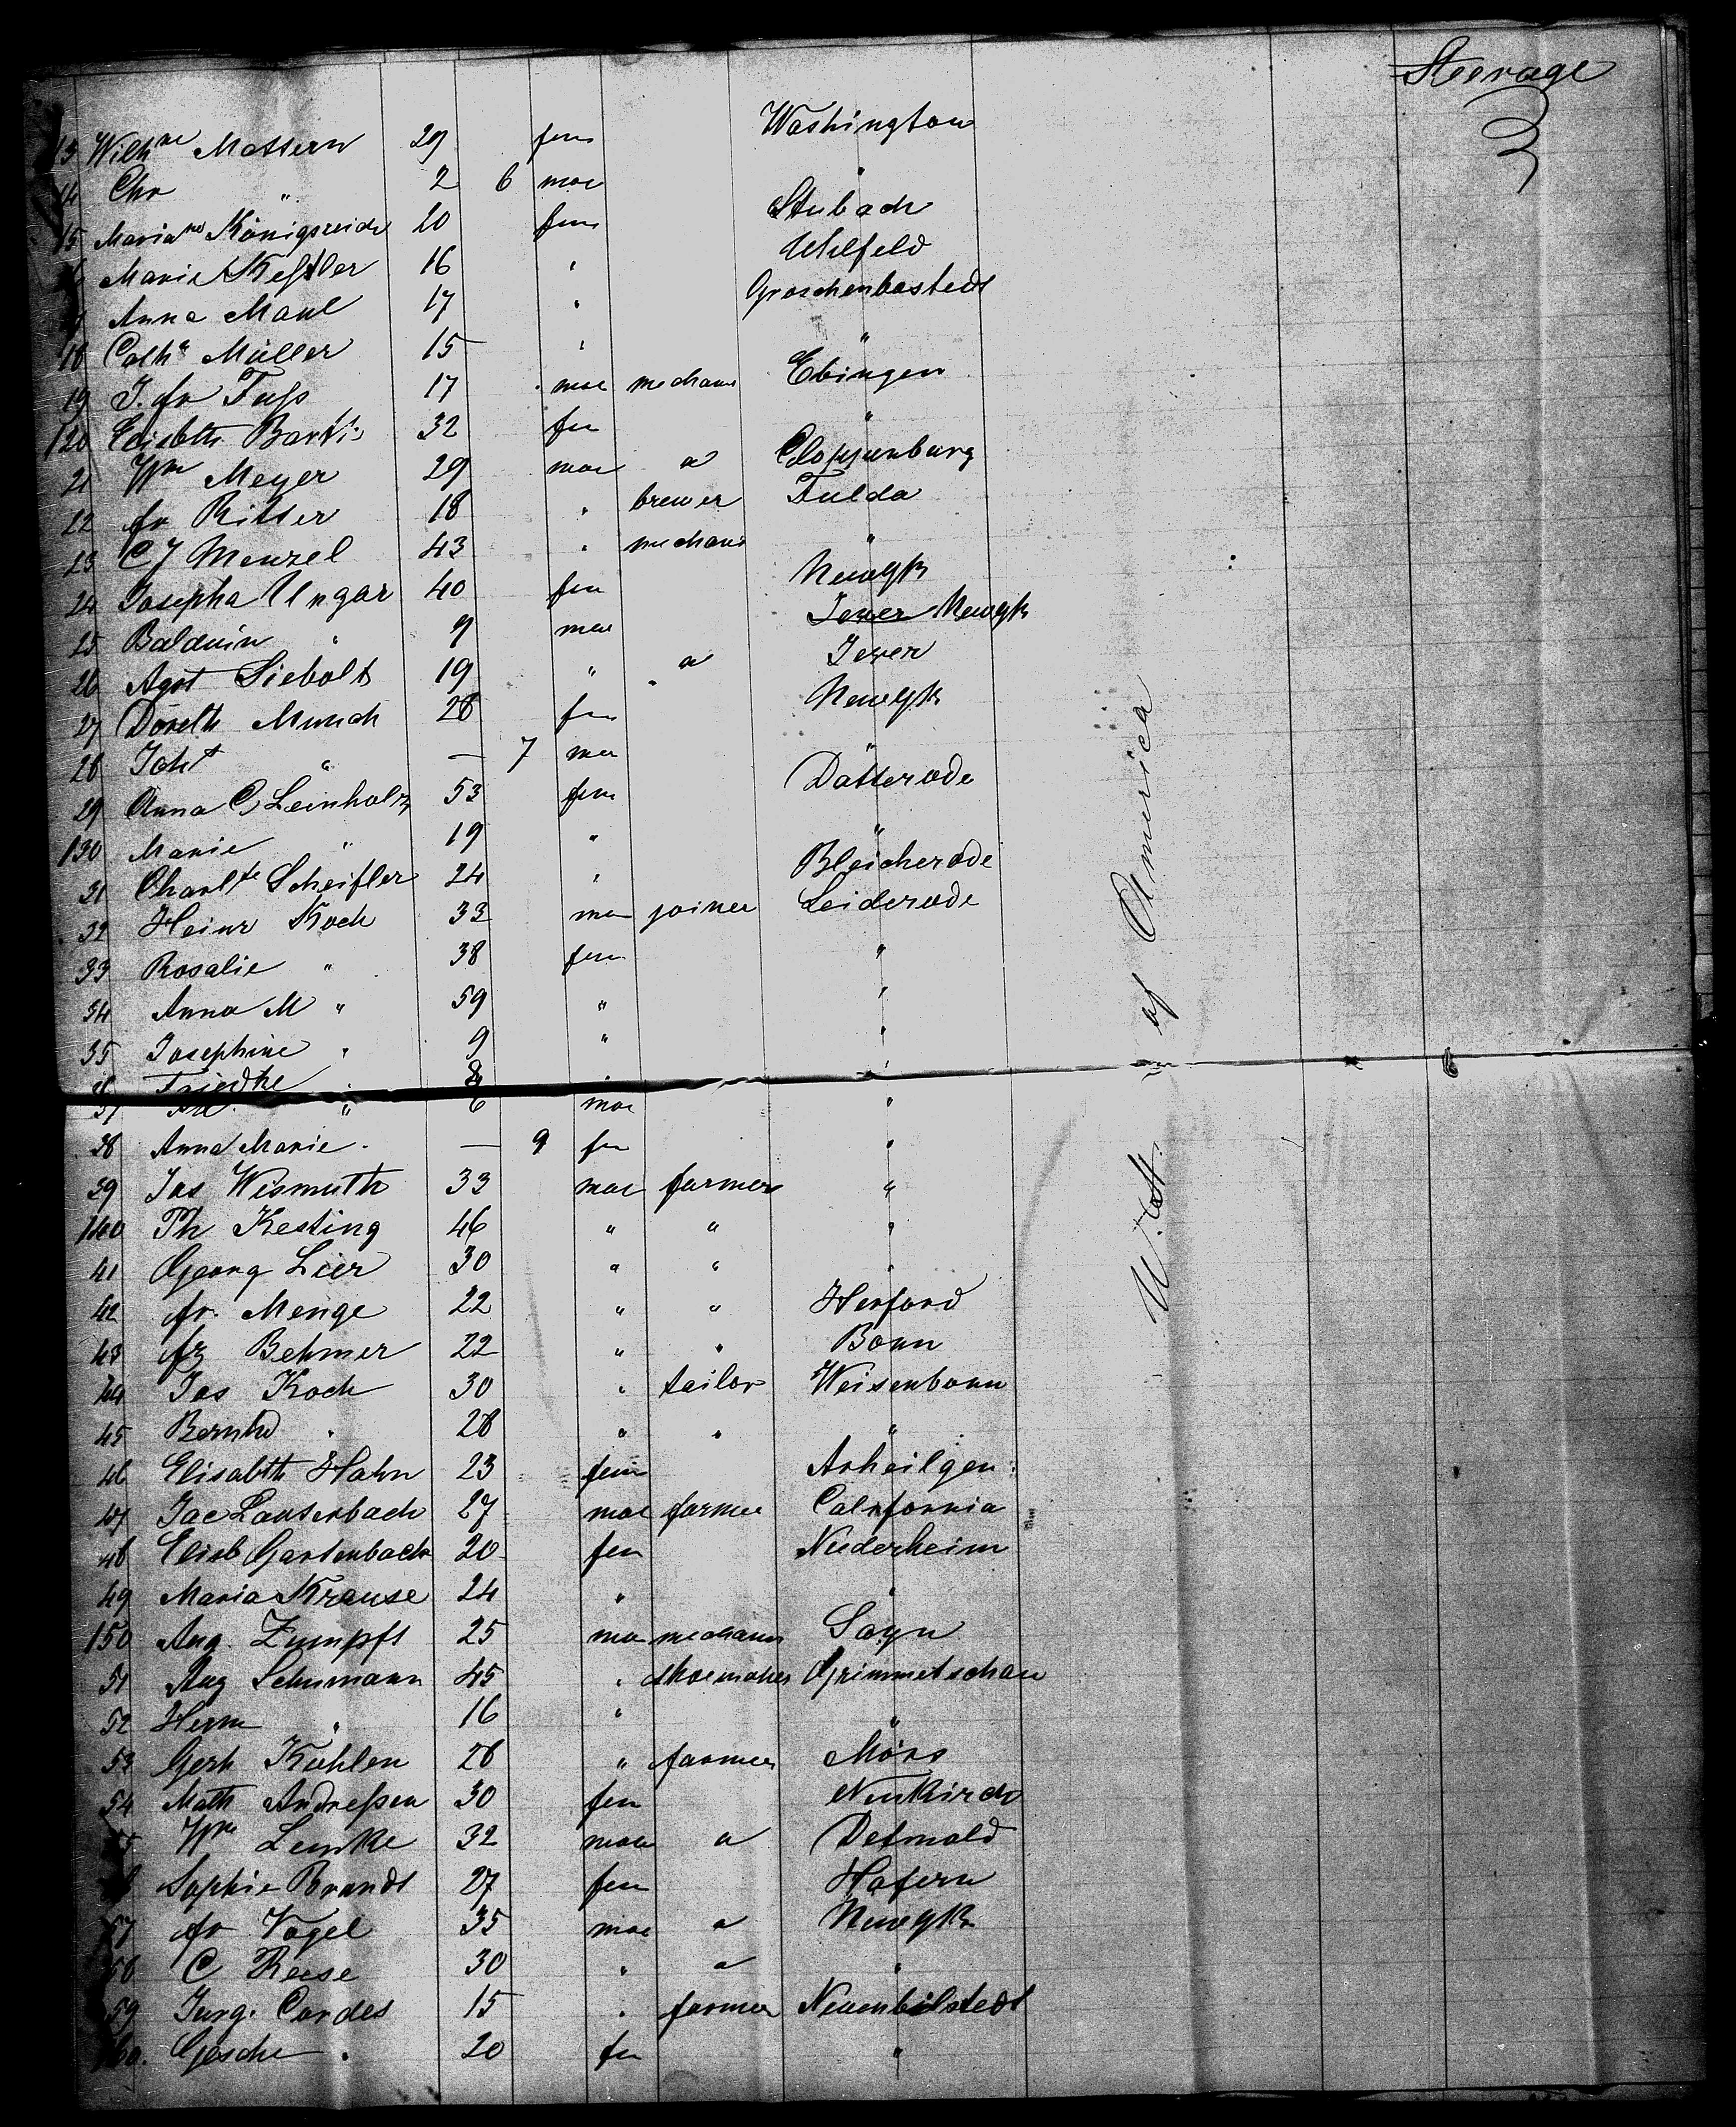 Steerage
13 Wilhne Mattern 29 fem Washington
14 Chr " 2 6 mae "
15 Mariane Königsreich 20 fem Stubach
16 Marie Keßler 16 " Uhlfeld
17 Anna Maul 17 " Groschenbastedt
18 Cathe Müller 15 " "
19 J. fr Fuß 17 mae mechanic Ebingen
120 Elisbth Barti 32 fem "
21 Wm Meyer 29 mae a Cloppenburg
22 fr Ritter 18 " brewer Fulda
23 C J Menzel 43 " mechanic "
24 Josepha Ungar 40 fem NewYk
25 Balduin " 9 mae Jever NewYk
26 Agst Siebolt 19 " a Jever
27 Doreth Munch 28 fem NewYk
28 Joht " — 7 mae "
29 Anna C Leinholz 53 fem Datterode
130 Marie " 19 " "
31 Charlte Scheifler 24 " Bleicherode
32 Heinr Koch 33 mae joiner Leiderode
33 Rosalie " 38 fem "
34 Anna M " 59 " "
35 Josephine " 9 " "
36 Friedke " 8 " "
37 " 6 mae "
38 Anna Marie " — 9 fem "
39 Jos Wismuth 33 mae farmer "
140 Th Kesting 46 " " "
41 Georg Lier 30 " " "
42 fr. Menge 22 " " Herford
43 fz Behmer 22 " " Bonn
44 Jos Koch 30 " tailor Weisenborn
45 Bernhd " 28 " " "
46 Elisabth Hahn 23 fem Arheilgen
47 Jac Lauterbach 27 mae farmer California
48 Elisb Gartenbach 20 fem Niederheim
49 Maria Krause 24 " "
150 Aug. Zumpft 25 mae mechanic Sayn
51 Aug Schumann 45 " shoemaker Grimmetschau
52 Herm " 16 " "
53 Gerh Kühlen 28 " farmer Mörs
54 Math Andreßen 30 fem Neukirch
55 Wm Lemke 32 mae a Detmold
56 Sophie Brandt 27 fem Hafern
57 fr Vogel 35 mae a NewYk
58 C Reese 30 " a "
59 Jurg. Cordes 15 " farmer Neuenbilstedt
160. Gesche " 20 fem "
U. St. of America